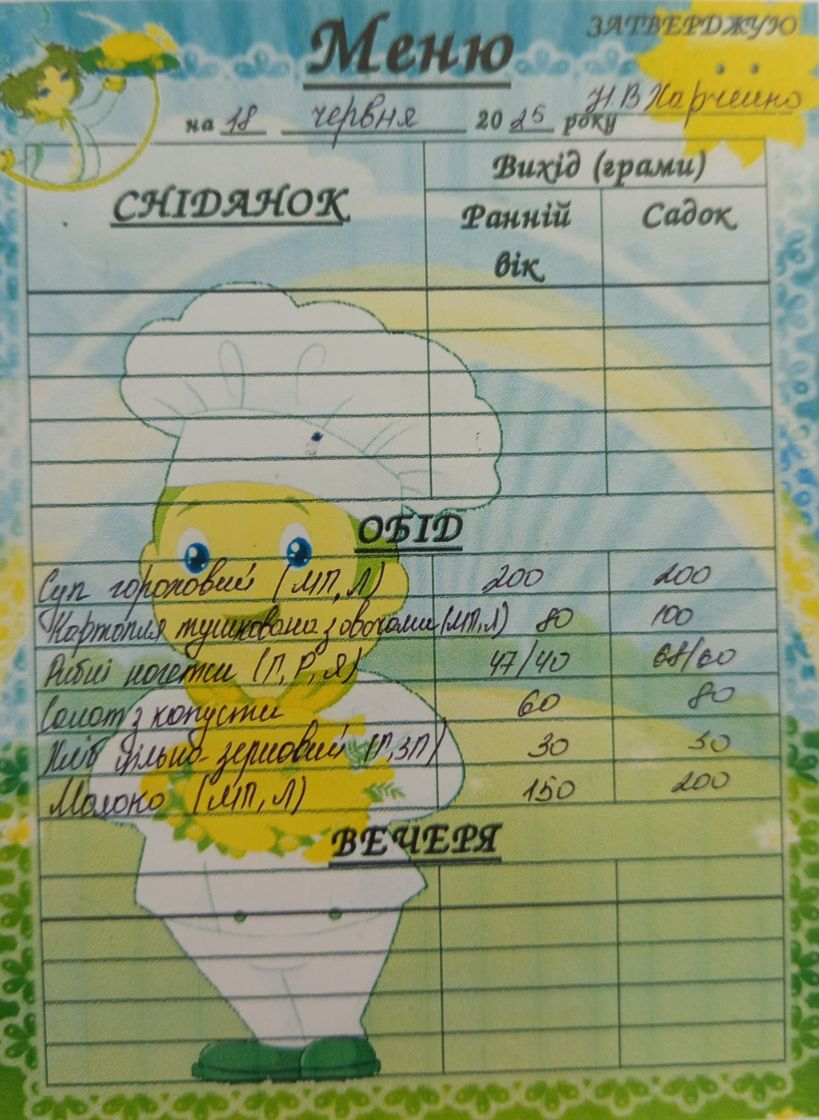 ЗАТВЕРДЖУЮ
Меню
Н.В Харченко
на 18 червня 2025 року
СНІДАНОК
Вихід (грами)
Ранній вік
Садок
ОБІД
Суп гороховий (МП, Л) 200 200
Картопля тушкована з овочами (МП,Л) 80 100
Рибні нагетси (Г, Р, Я) 47/40 68/60
Салат з капусти 60 80
Хліб цільно-зерновий (Г, ЗП) 30 50
Молоко (МП, Л) 150 200
ВЕЧЕРЯ